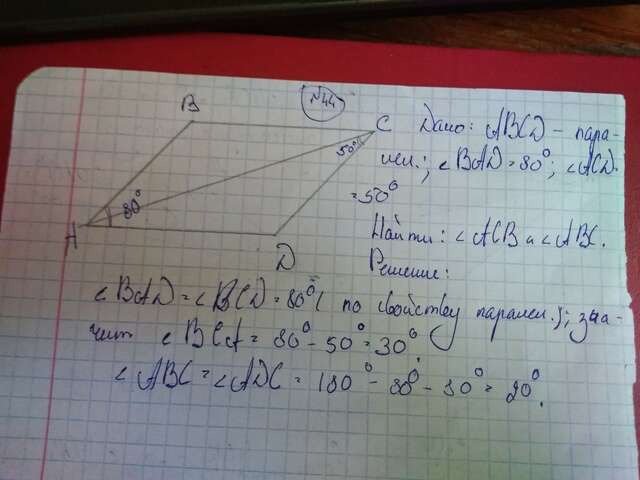 №44
B
C
A
D
80°
50°
Дано: ABCD - пара-
лел.; ∠BAD=80°; ∠ACD
=50°
Найти: ∠ACB и ∠ABC.
Решение:
∠BAD=∠BCD=80° ( по свойству паралел.); зна-
чит ∠BCA = 80° - 50° = 30°.
∠ABC = ∠ADC = 180° - 80° - 80° = 20°.